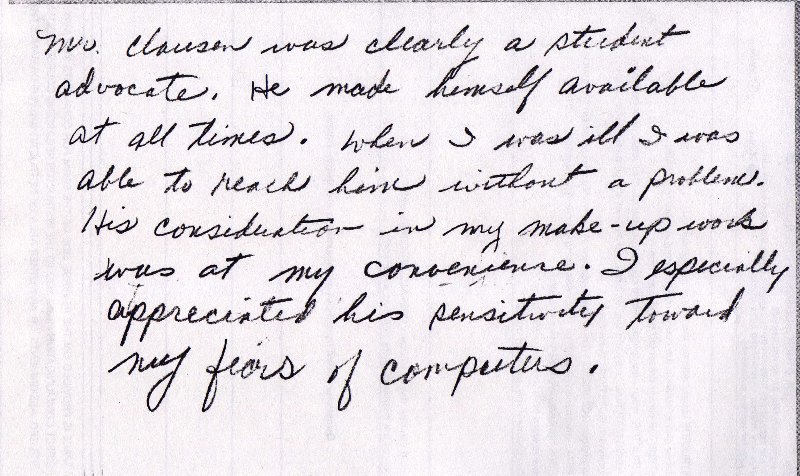 Mr. Clausen was clearly a student
advocate. He made himself available
at all times. When I was ill I was
able to reach him without a problem.
His consideration in my make-up work
was at my convenience. I especially
appreciated his sensitivity toward
my fears of computers.